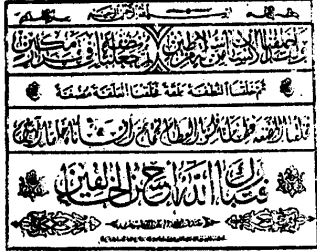 بسم الله الرحمن الرحيم
ولقد خلقنا الانسان من سلالة من طين ثم جعلناه نطفة في قرار مكين
ثم خلقنا النطفة علقة فخلقنا العلقة مضغة
فخلقنا المضغة عظاما فكسونا العظام لحما ثم أنشأناه خلقا آخر
فتبارك الله أحسن الخالقين